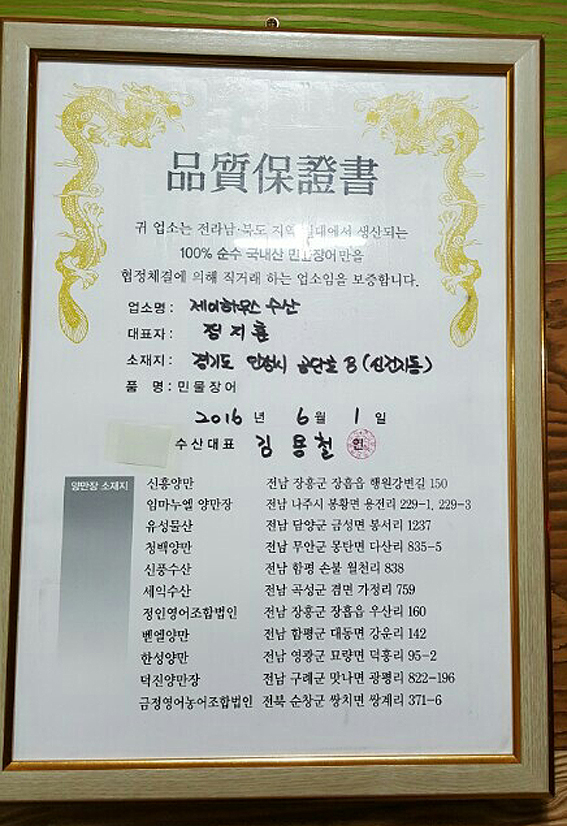 品質保證書
귀 업소는 전라남·북도 지역 일대에서 생산되는
100% 순수 국내산 민물장어만을
협정체결에 의해 직거래 하는 업소임을 보증합니다.
업소명: 제이하우스 수산
대표자: 정지훈
소재지: 경기도 안성시 공단로 B (신건지동)
품 명: 민물장어
2016 년 6 월 1 일
수산대표 김용철 인
양만장 소재지
신흥양만 전남 장흥군 장흥읍 행원강변길 150
임마누엘 양만장 전남 나주시 봉황면 용전리 229-1, 229-3
유성물산 전남 담양군 금성면 봉서리 1237
청백양만 전남 무안군 몽탄면 다산리 835-5
신풍수산 전남 함평 손불 월천리 838
세익수산 전남 곡성군 겸면 가정리 759
정인영어조합법인 전남 장흥군 장흥읍 우산리 160
벧엘양만 전남 함평군 대동면 강운리 142
한성양만 전남 영광군 묘량면 덕흥리 95-2
덕진양만장 전남 구례군 맛나면 광평리 822-196
금정영어농어조합법인 전북 순창군 쌍치면 쌍계리 371-6